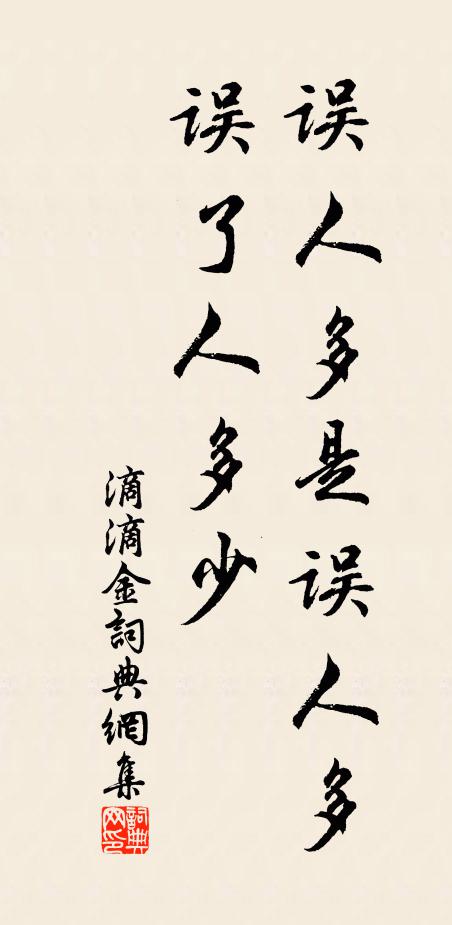 误人多是误人多
误了人多少
滴滴金詞典網集
詞典网印